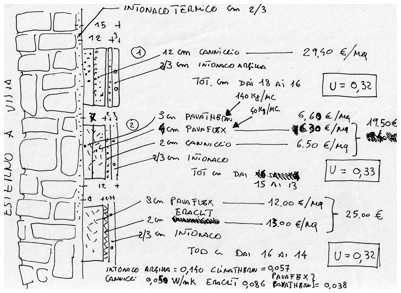 INTONACO TERMICO cm 2/3
15 +
12 +3+
1
12 cm CANNICCIO 29.40 €/MQ
2/3 cm INTONACO ARGILLA
TOT. cm DAI 18 AI 16
U = 0,32
140 KG/MC
2
3 cm PAVATHERM 6.60 €/MQ
4 cm PAVAFLEX 6.30 €/MQ
19.50 €
2 cm CANNICCIO 6.50 €/MQ
2/3 cm INTONACO
U = 0,33
TOT cm DAI
15 AI 13
12 +
ESTERNO A VISTA
8cm PAVAFLEX 12.00 €/MQ
ERACLIT
2 cm 13.00 €/MQ
25.00 €
2/3 cm INTONACO
TOT cm DAI 16 AI 14
U = 0,32
INTONACO ARGILLA = 0,140 CLIMATHERM = 0,057 PAVAFLEX
CANNICCI 0,050 W/mK ERACLIT 0,086 PAVATHERM = 0,038